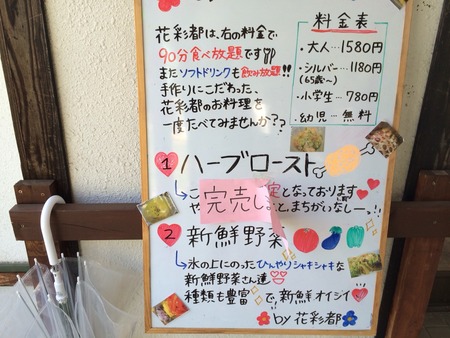 花彩都は、右の料金で
90分食べ放題です!!
またソフトドリンクも飲み放題!!
手作りにこだわった、
花彩都のお料理を
一度たべてみませんか??
料金表
・大人…1580円
・シルバー…1180円
(65歳〜)
・小学生…780円
・幼児…無料
1 ハーブロースト
こ 定となっております
完売し
や と、まちがいなしー。!!
2 新鮮野菜
氷の上にのったひんやりシャキシャキな
新鮮野菜さん達
種類も豊富で、新鮮オイシイ
by 花彩都